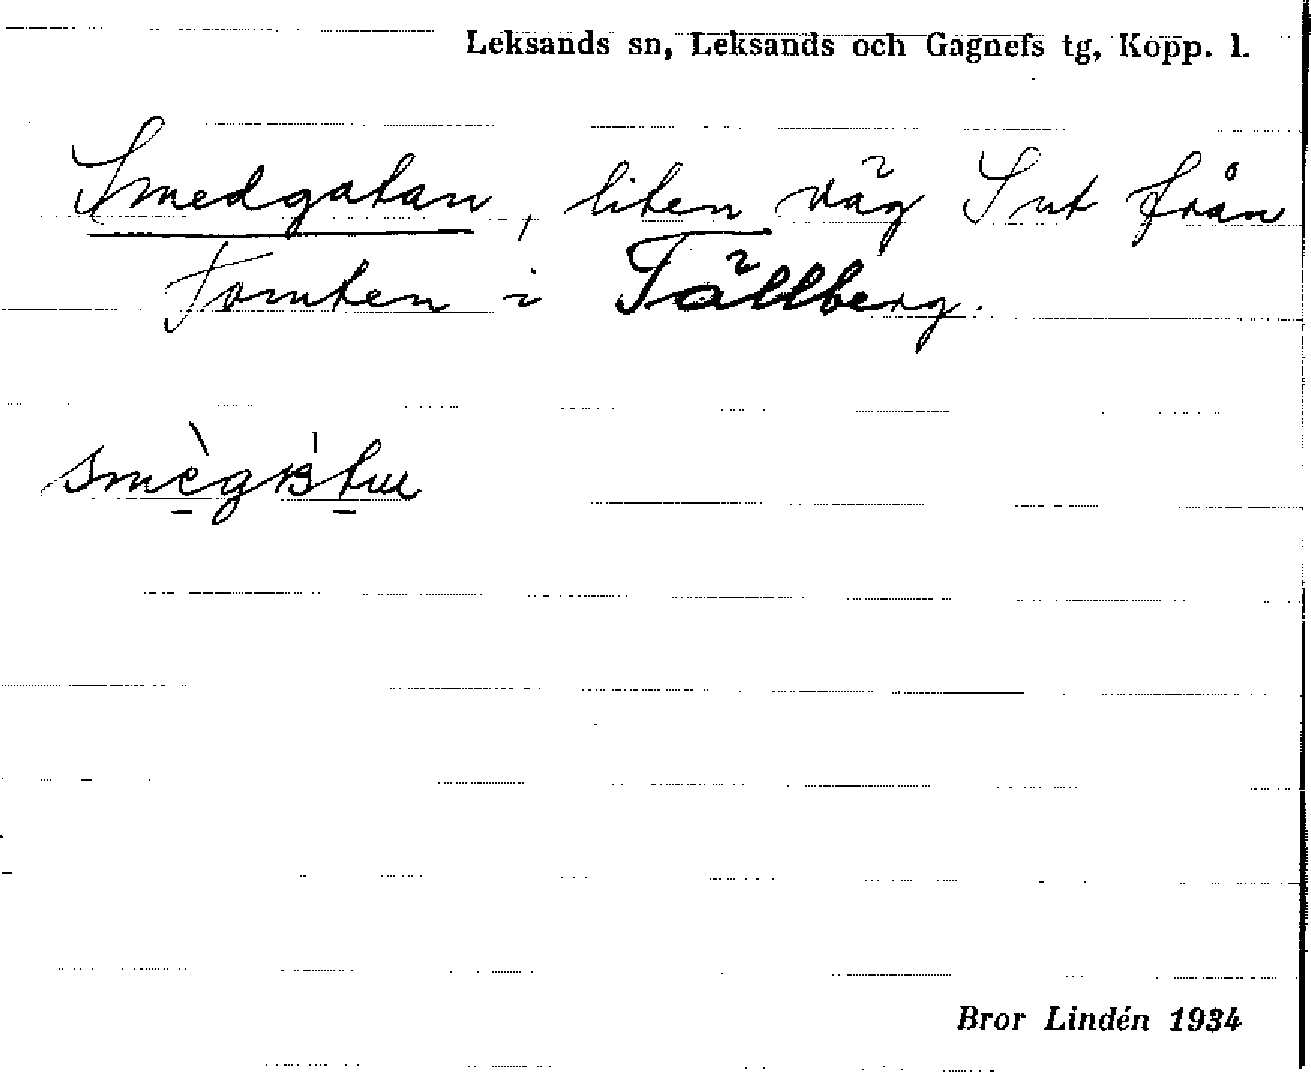 Leksands sn, Leksands och Gagnefs tg, Kopp. l.
Smedgatan, liten väg S ut från
Tomten i Tällberg.
Bror Lindén 1934